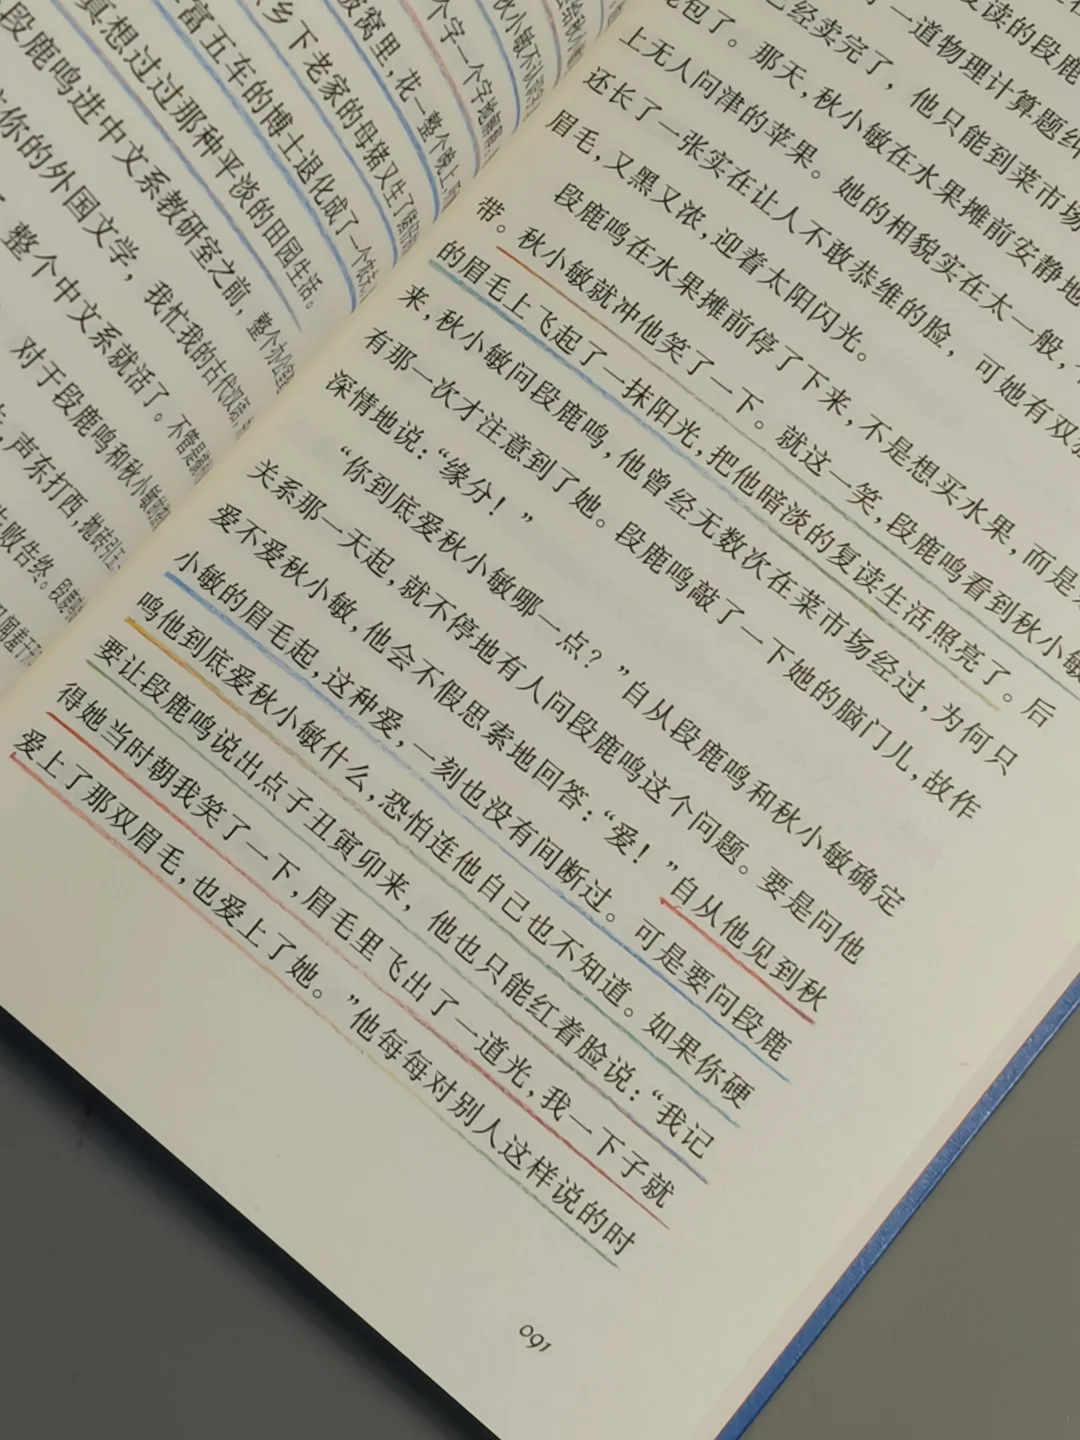 真想过过那种平淡的田园生活。
段鹿鸣进中文系教研室之前，整个办公室
你的外国文学，我忙我的古代汉语，
整个中文系就活了。不管是
对于段鹿鸣和秋小敏
声东打西，抛砖引玉
败告终。段鹿
富五车的博士退化成了一个
乡下老家的母猪又生了
被窝里，花一整个晚上
个字一个字地
秋小敏不认
复读的段鹿
了一道物理计算题
已经卖完了，他只能到菜市场
包了。那天，秋小敏在水果摊前安静地
上无人问津的苹果。她的相貌实在太一般，
还长了一张实在让人不敢恭维的脸，可她有双
眉毛，又黑又浓，迎着太阳闪光。
段鹿鸣在水果摊前停了下来，不是想买水果，而是
带。秋小敏就冲他笑了一下。就这一笑，段鹿鸣看到秋小敏
的眉毛上飞起了一抹阳光，把他暗淡的复读生活照亮了。后
来，秋小敏问段鹿鸣，他曾经无数次在菜市场经过，为何只
有那一次才注意到了她。段鹿鸣敲了一下她的脑门儿，故作
深情地说：“缘分！”
“你到底爱秋小敏哪一点？”自从段鹿鸣和秋小敏确定
关系那一天起，就不停地有人问段鹿鸣这个问题。要是问他
爱不爱秋小敏，他会不假思索地回答：“爱！”自从他见到秋
小敏的眉毛起，这种爱，一刻也没有间断过。可是要问段鹿
鸣他到底爱秋小敏什么，恐怕连他自己也不知道。如果你硬
要让段鹿鸣说出点子丑寅卯来，他也只能红着脸说：“我记
得她当时朝我笑了一下，眉毛里飞出了一道光，我一下子就
爱上了那双眉毛，也爱上了她。”他每每对别人这样说的时
091